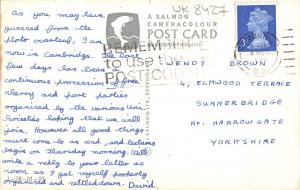 UK 8427
As you may have
guessed from the
photo overleaf, I am
now in Cambridge. The last
few days has been a
continuous procession of free
sherry and port parties
organised by the various Univ.
Societies hoping that we will
join. However all good things
must come to an end, and lectures
begin on Thursday morning. Will
write a reply to your letter as
soon as I get myself properly
organised and settled down.
David.
A SALMON
CAMERACOLOUR
POST CARD
REMEMBER
to use the
POST CODE
WENDY BROWN
4, ELMWOOD TERRACE
SUMMERBRIDGE
Nr. HARROWGATE
YORKSHIRE